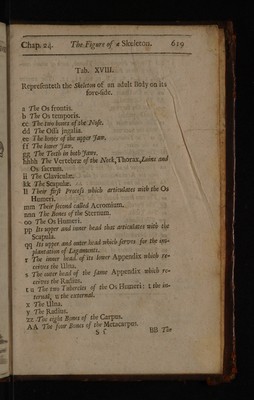 Chap. 24. The Figure of a Skeleton. 619
Tab. XVIII.
Representeth the Skeleton of an adult Body on its
fore-side.
a The Os frontis.
b The Os temporis.
cc The two bones of the Nose.
dd The Ossa jugalia.
ee The bones of the upper Jaw.
ff The lower Jaw.
gg The Teeth in both Jaws.
hhhh The Vertebræ of the Neck, Thorax, Loins and
Os sacrum.
ii The Claviculæ.
kk The Scapulæ.
ll Their first Process which articulates with the Os
Humeri.
mm Their second called Acromium.
nnn The Bones of the Sternum.
oo The Os Humeri.
pp Its upper and inner head that articulates with the
Scapula.
qq Its upper and outer head which serves for the im-
plantation of Ligaments.
r The inner head of its lower Appendix which re-
ceives the Ulna.
s The outer head of the same Appendix which re-
ceives the Radius.
t u The two Tubercles of the Os Humeri: t the in-
ternal, u the external.
x The Ulna.
y The Radius.
zz The eight Bones of the Carpus.
AA The four Bones of the Metacarpus.
BB The